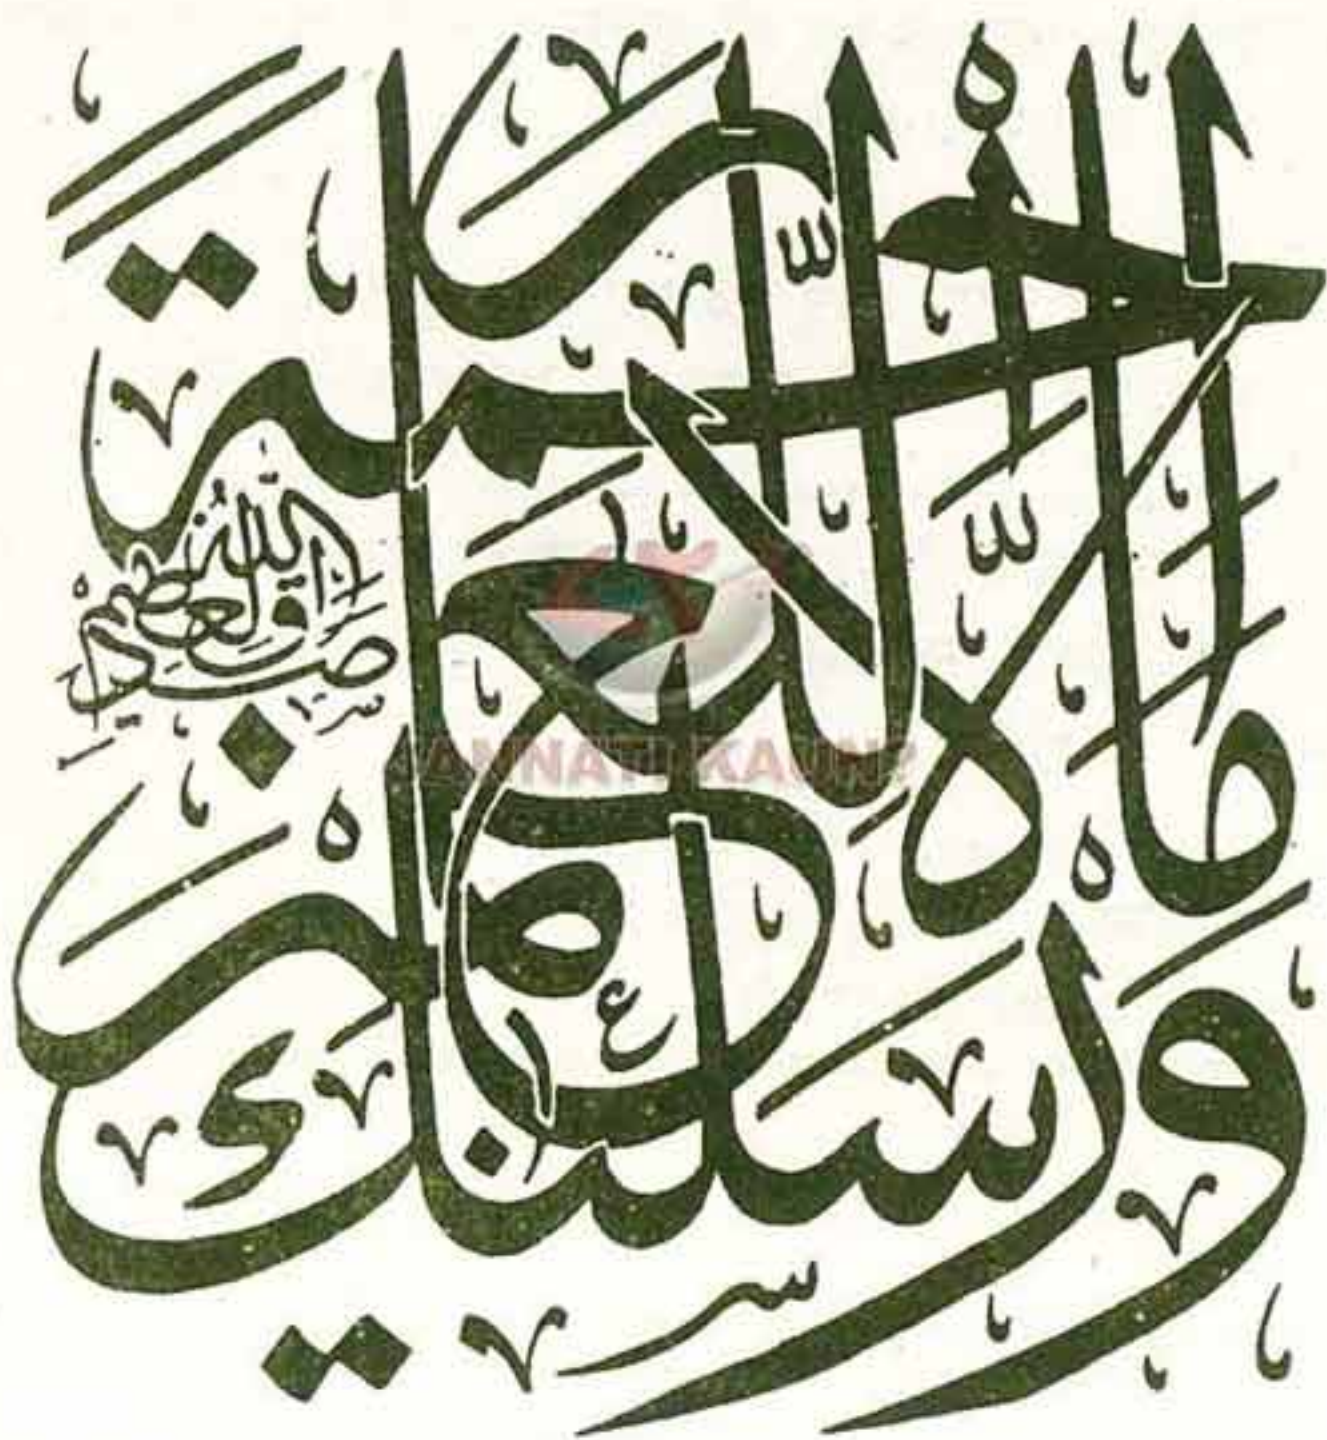 وَمَا أَرْسَلْنَاكَ إِلَّا رَحْمَةً لِّلْعَالَمِينَ
صدق الله العظيم
JANNATI KAUN?